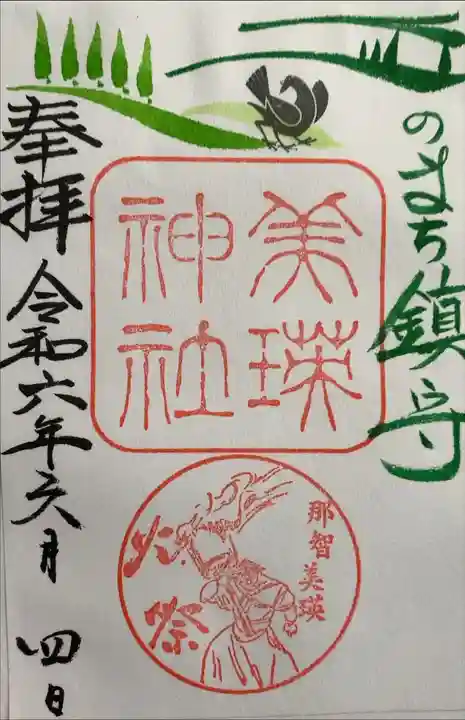 丘のまち鎮守
美瑛
神社
那智美瑛
火祭
奉拝 令和六年六月四日